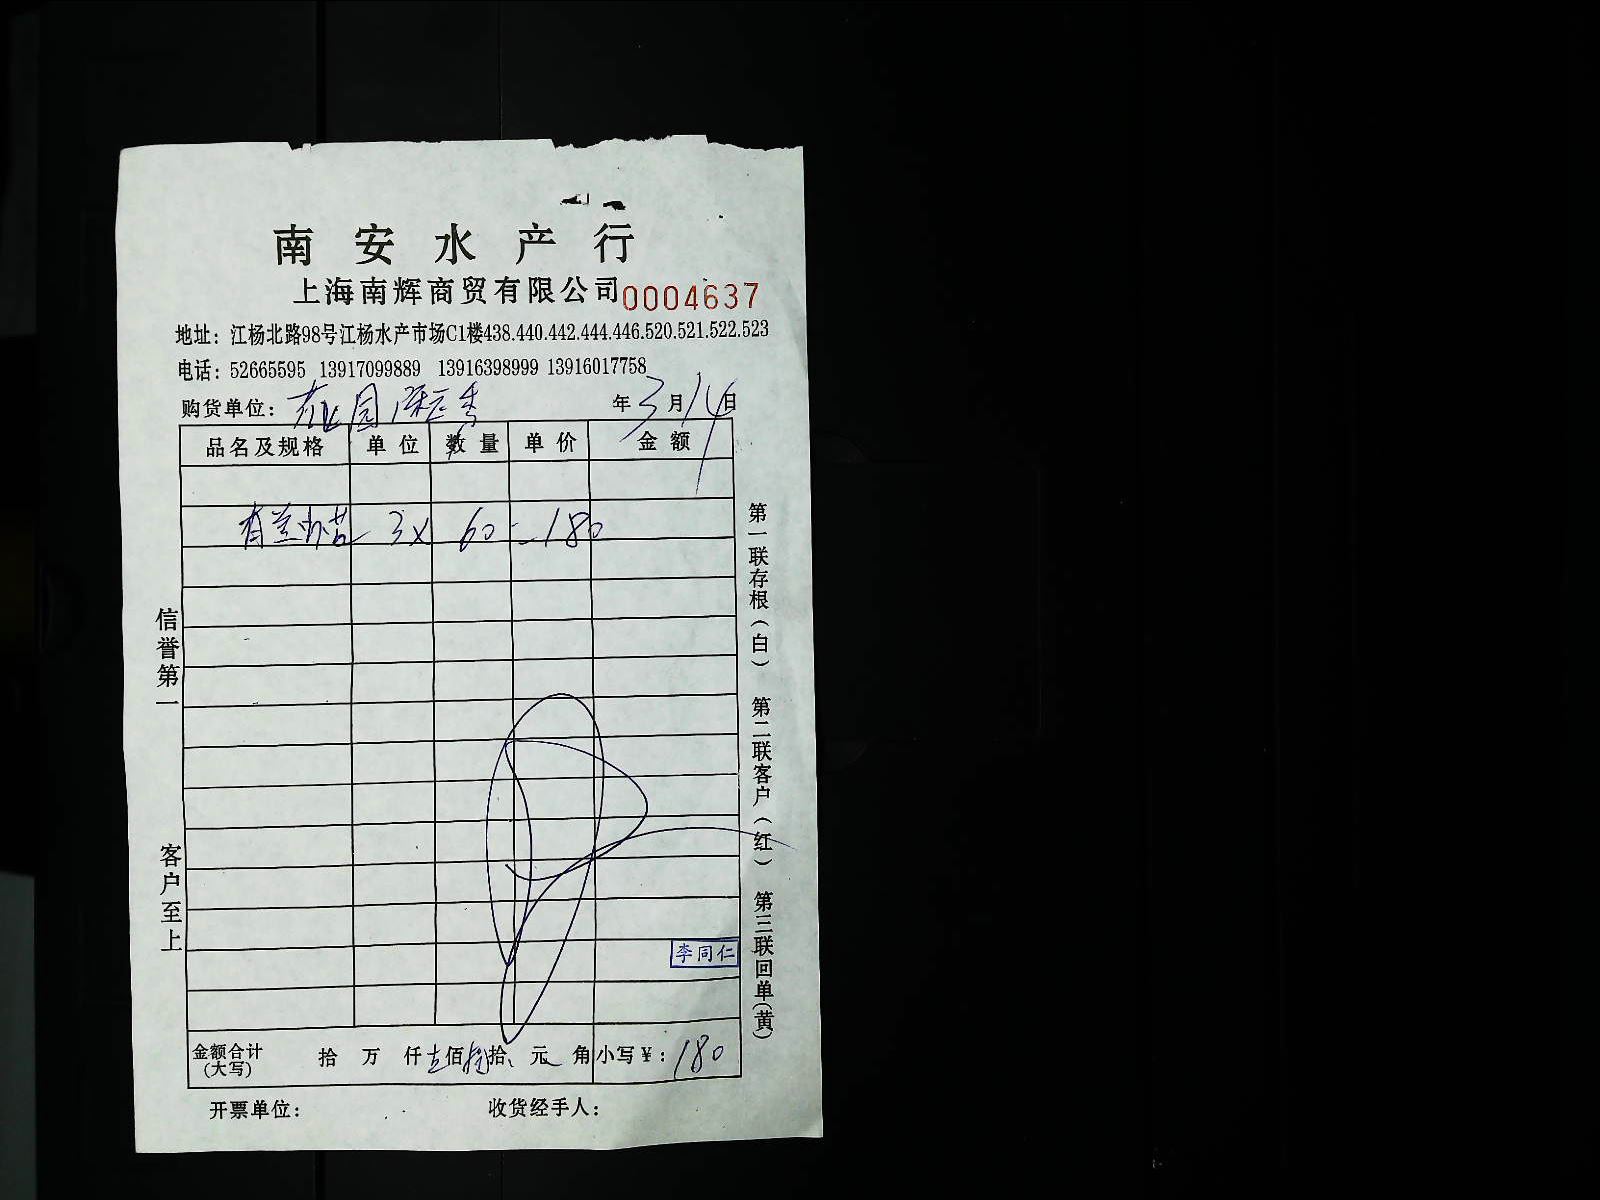 南安水产行
上海南辉商贸有限公司 0004637
地址：江杨北路98号江杨水产市场C1楼438.440.442.444.446.520.521.522.523
电话：52665595 13917099889 13916398999 13916017758
购货单位： 年3月14日
品名及规格 单位 数量 单价 金额
3× 60=180
李同仁
金额合计(大写) 拾 万 仟 壹佰 捌拾 元 角 小写￥：180
开票单位： 收货经手人：
信誉第一 客户至上
第一联存根（白） 第二联客户（红） 第三联回单（黄）